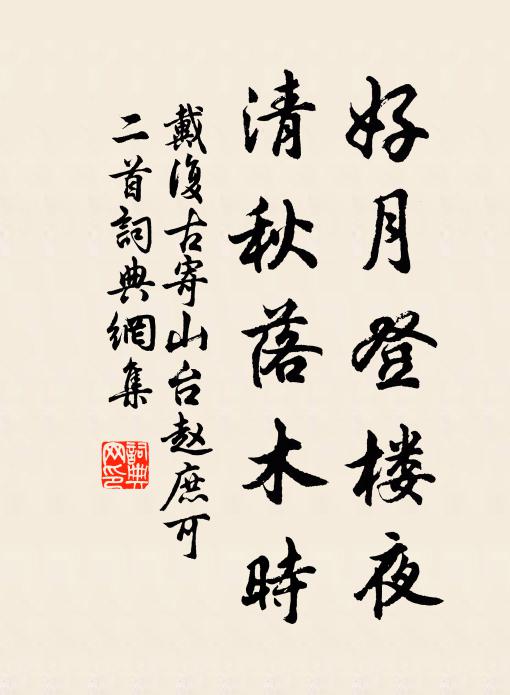 好月登楼夜
清秋落木時
戴復古寄山台赵庶可
二首詞典網集
詞典
网印